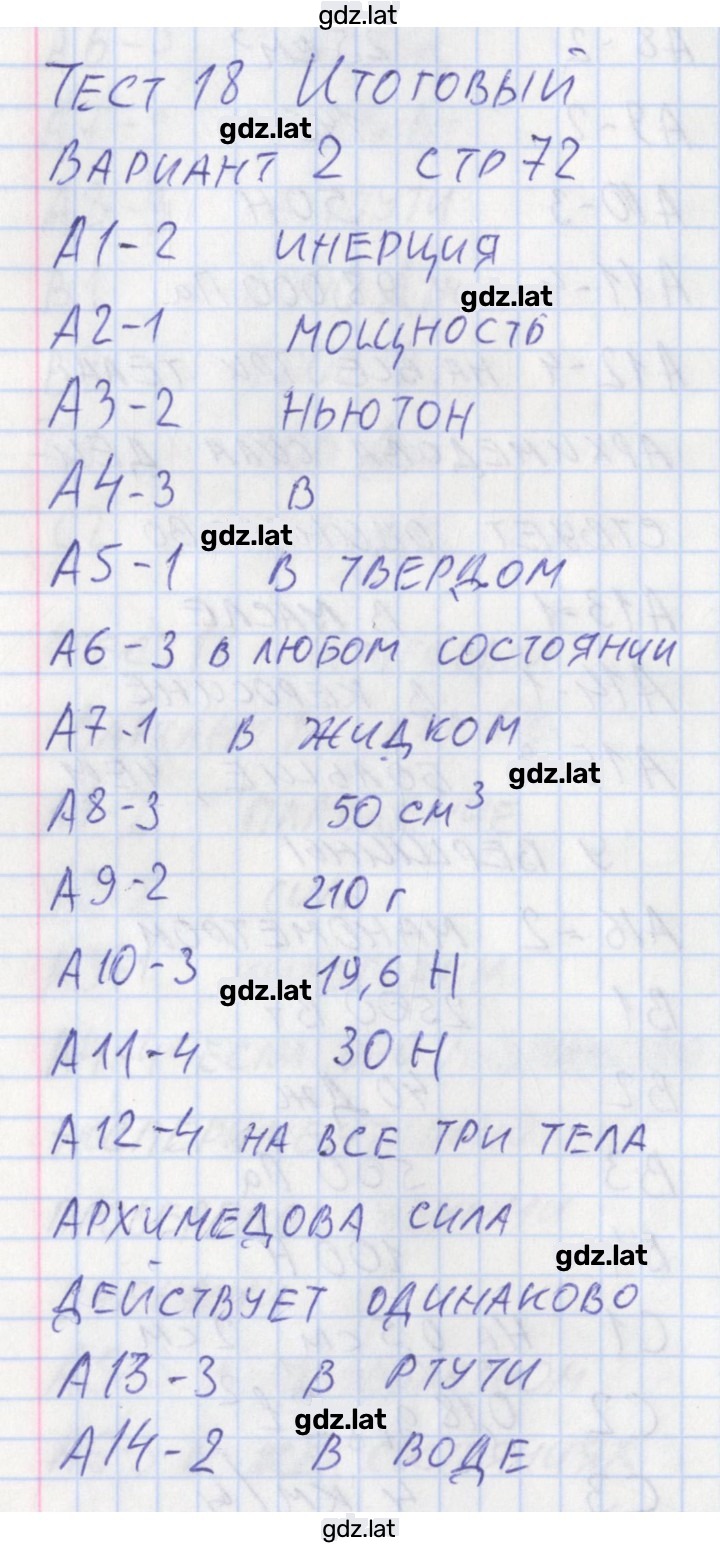 gdz.lat
ТЕСТ 18 ИТОГОВЫЙ
gdz.lat
ВАРИАНТ 2 СТР 72
А1-2 ИНЕРЦИЯ
gdz.lat
А2-1 МОЩНОСТЬ
А3-2 НЬЮТОН
А4-3 В
gdz.lat
А5-1 В ТВЕРДОМ
А6-3 В ЛЮБОМ СОСТОЯНИИ
А7-1 В ЖИДКОМ
gdz.lat
А8-3 50 см³
А9-2 210 г
А10-3 19,6 Н
gdz.lat
А11-4 30 Н
А12-4 НА ВСЕ ТРИ ТЕЛА
АРХИМЕДОВА СИЛА
gdz.lat
ДЕЙСТВУЕТ ОДИНАКОВО
А13-3 В РТУТИ
gdz.lat
А14-2 В ВОДЕ
gdz.lat